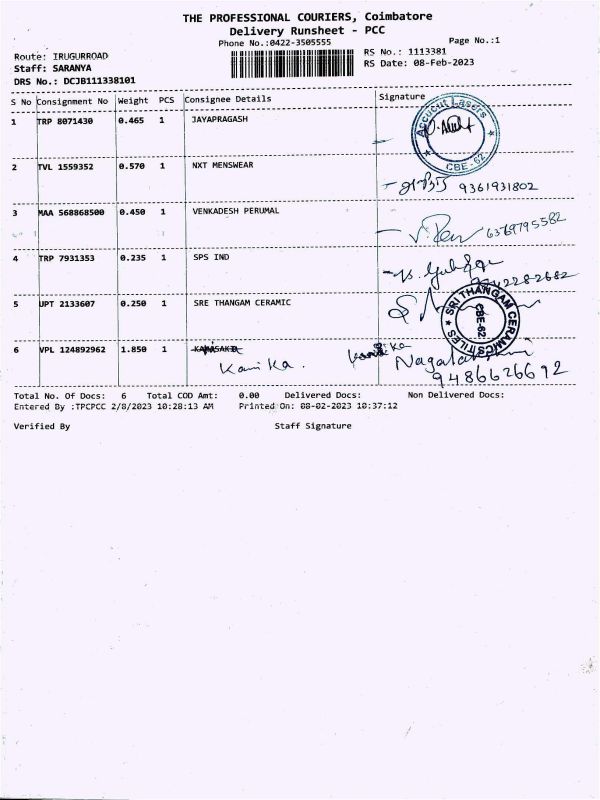 THE PROFESSIONAL COURIERS, Coimbatore
Delivery Runsheet - PCC
Phone No.:0422-3505555
Page No.:1
Route: IRUGURROAD
RS No.: 1113381
Staff: SARANYA
RS Date: 08-Feb-2023
DRS No.: DCJB111338101
S No Consignment No Weight PCS Consignee Details Signature
1 TRP 8071430 0.465 1 JAYAPRAGASH
Accucut Lasers
CBE-62
2 TVL 1559352 0.570 1 NXT MENSWEAR
9361931802
3 MAA 568868500 0.450 1 VENKADESH PERUMAL
6369795582
4 TRP 7931353 0.235 1 SPS IND
5 UPT 2133607 0.250 1 SRE THANGAM CERAMIC
SRI THANGAM CERAMICS TILES
CBE-62
6 VPL 124892962 1.850 1
Kanika.
9486626692
Total No. Of Docs: 6 Total COD Amt: 0.00 Delivered Docs: Non Delivered Docs:
Entered By :TPCPCC 2/8/2023 10:28:13 AM Printed On: 08-02-2023 10:37:12
Verified By Staff Signature